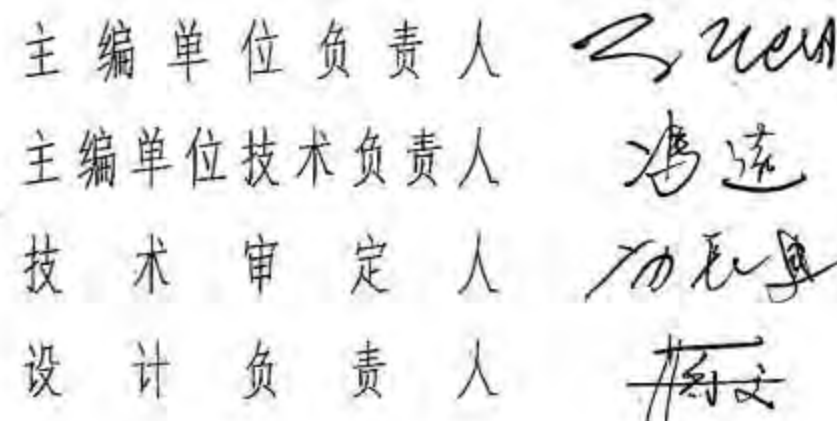 主编单位负责人
主编单位技术负责人 冯远
技术审定人
设计负责人